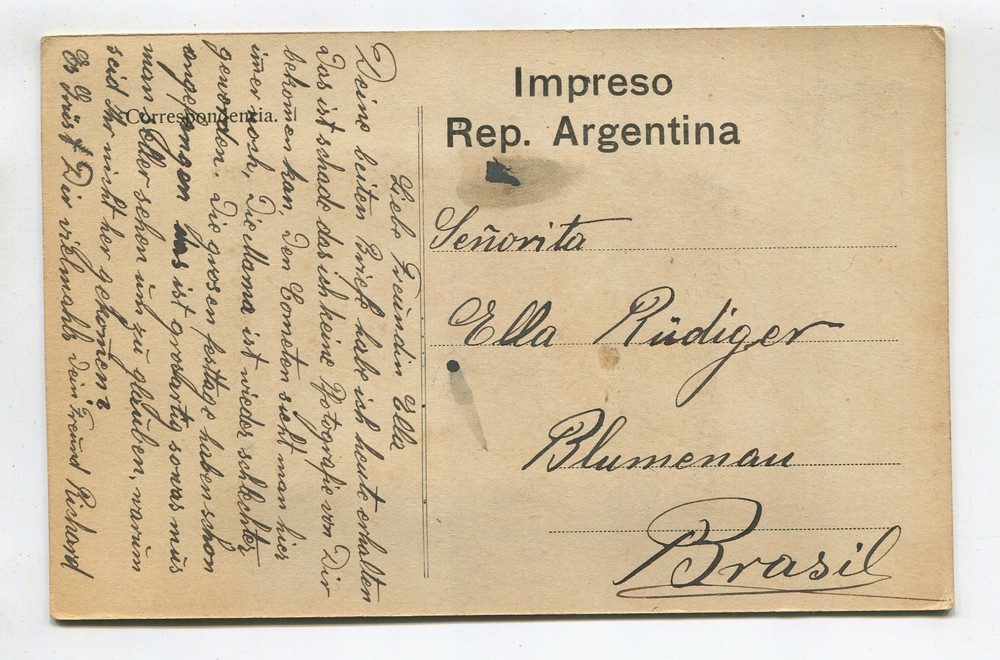 Impreso
Rep. Argentina
Correspondencia.
Señorita
Ella Rüdiger
Blumenau
Brasil
Liebe Freundin Ella
Deine beiten Briefe habe ich heute erhalten
Das ist schade das ich keine Photografie von Dir
bekomen kan, Den Cometen sieht man hier
imer noch, Die Mama ist wieder schlechter
geworden. Die grosen festtage haben schon
angefangen ist grosartig sowas mus
man Eller sehen um zu glauben, warum
seid Ihr nicht her gekomen?
Es Grüst Dir vielmahls Dein Freund Richard